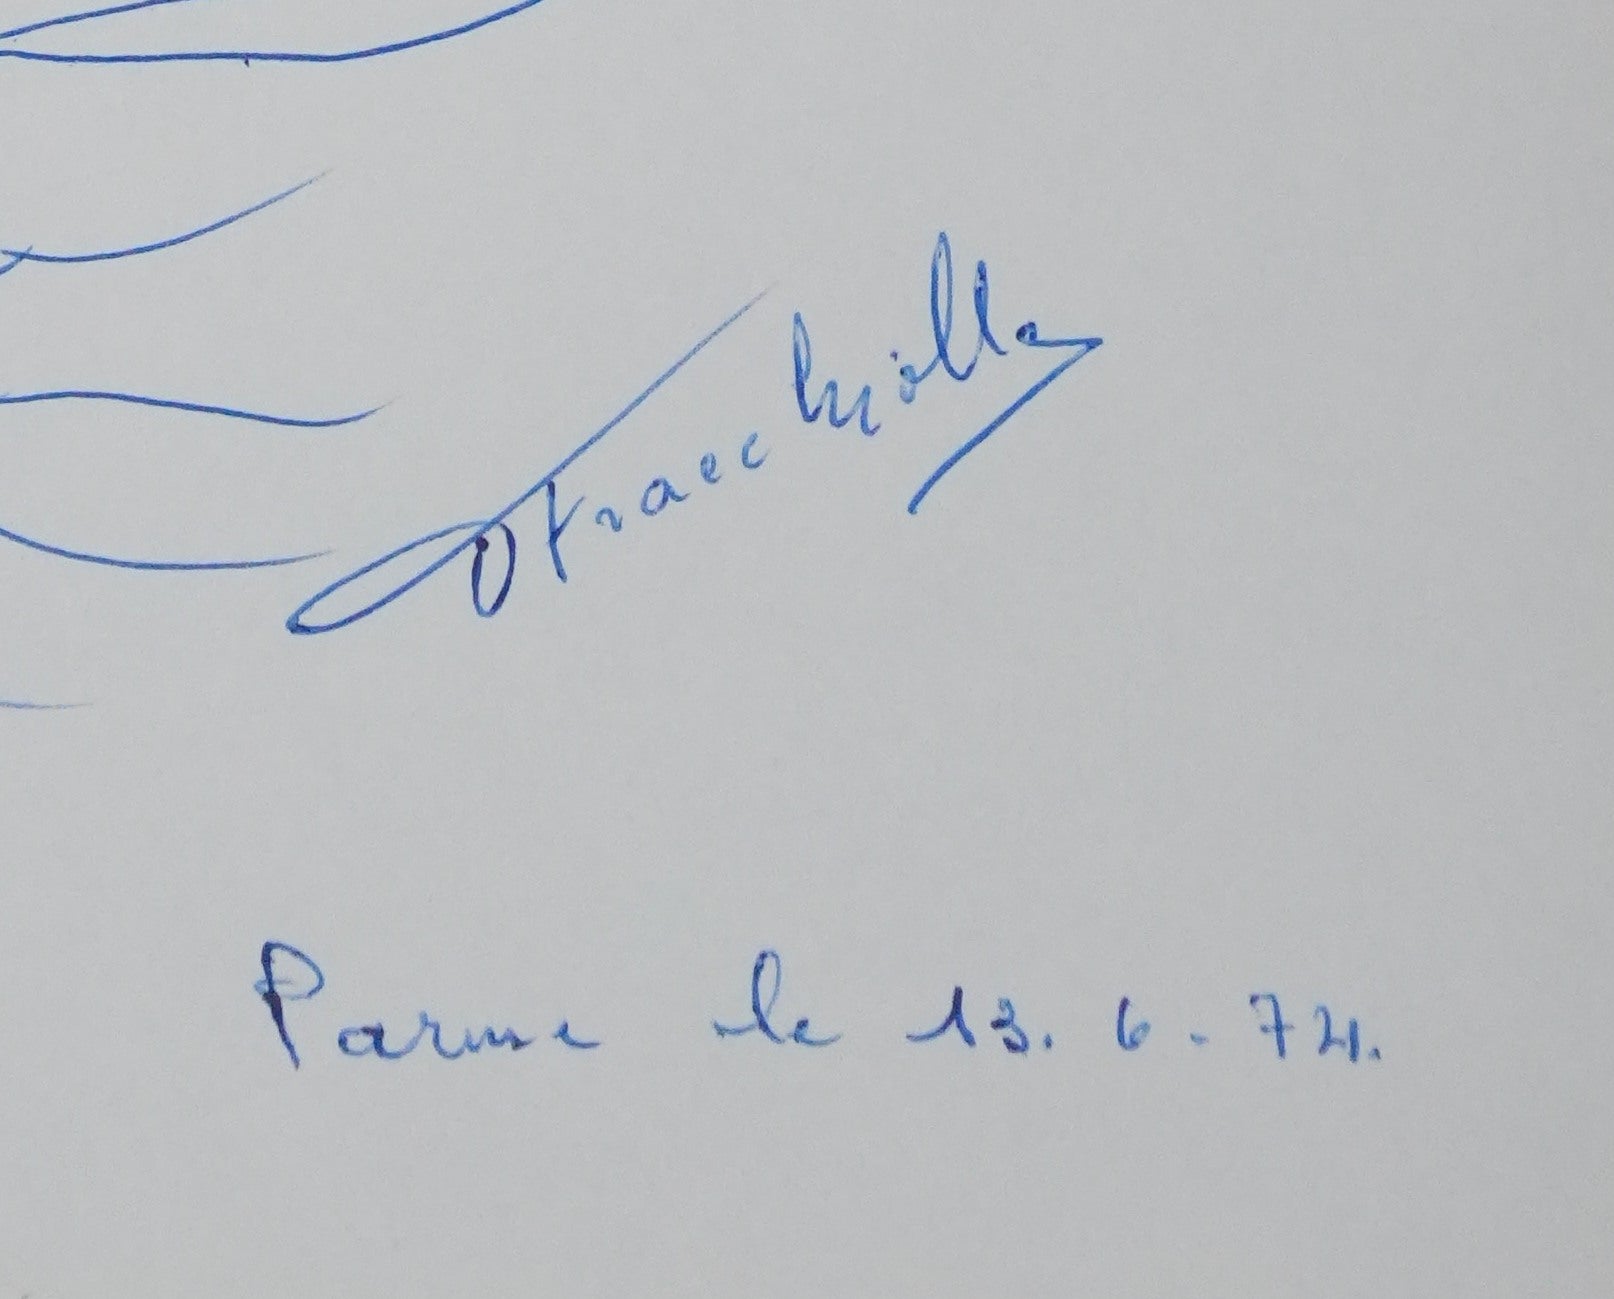 O Fracchiolla
Parme le 13. 6 - 74.